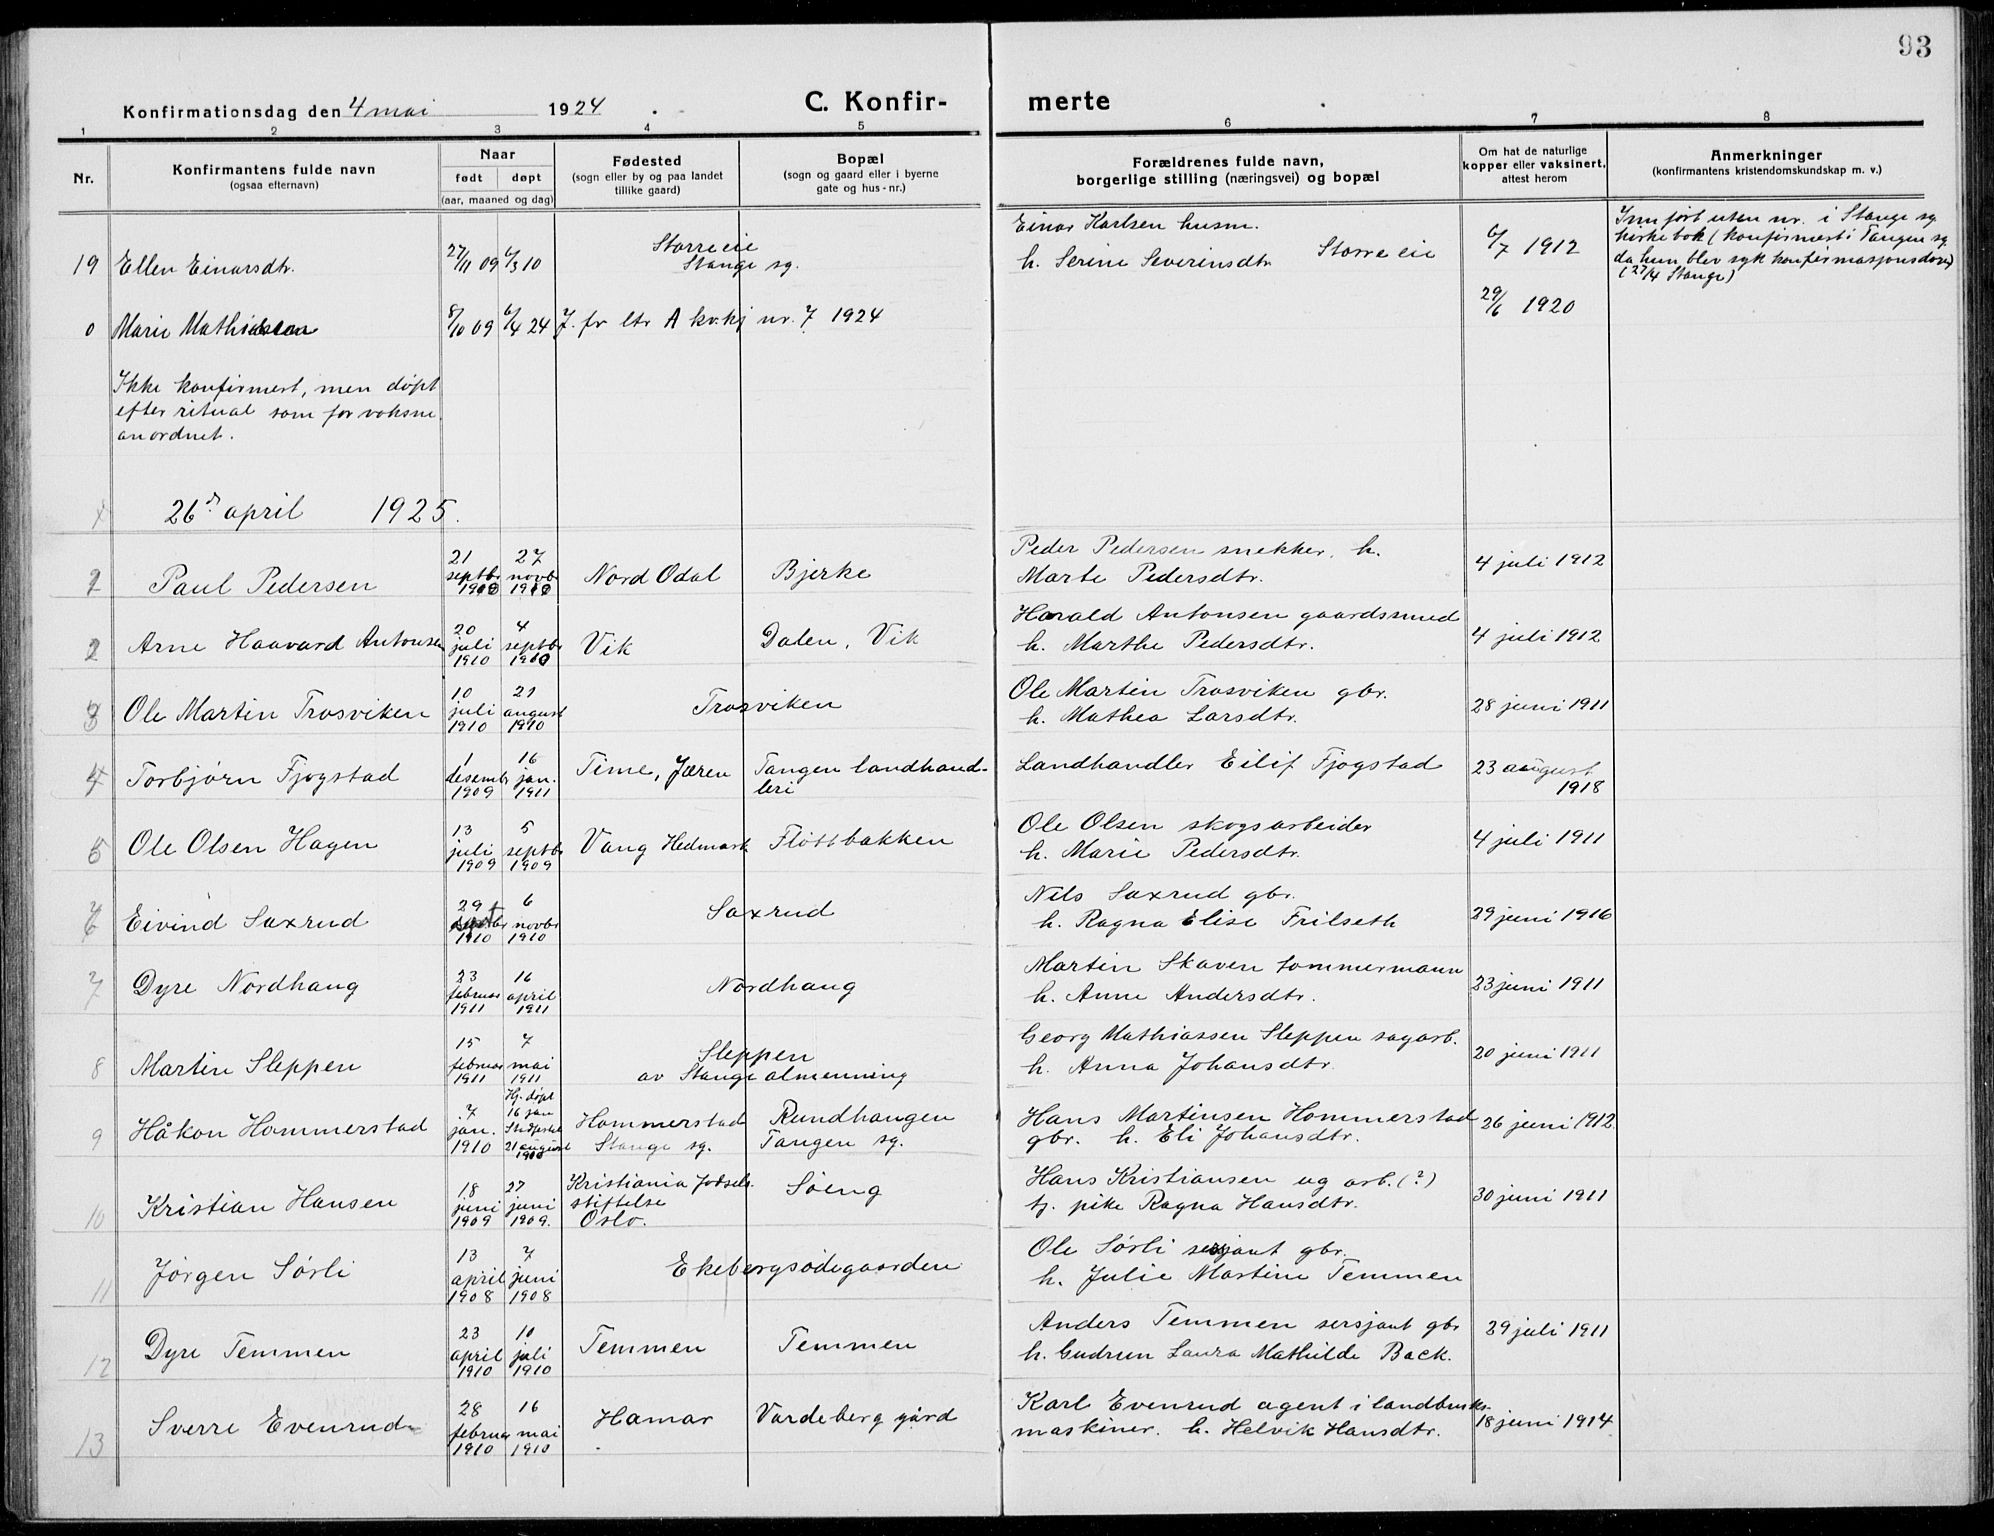 93
Konfirmationsdag den 4 mai 1924
C. Konfir-
merte
1 2 3 4 5 6 7 8
Nr.
Konfirmantens fulde navn
(ogsaa efternavn)
Naar
født døpt
(aar, maaned og dag)
Fødested
(sogn eller by og paa landet
tillike gaard)
Bopæl
(sogn og gaard eller i byerne
gate og hus-nr.)
Forældrenes fulde navn,
borgerlige stilling (næringsvei) og bopæl
Om hat de naturlige
kopper eller vaksinert,
attest herom
Anmerkninger
(konfirmantens kristendomskundskap m. v.)
19 Ellen Einarsdtr. 27/11 09 6/3 10
Storre eie
Stange sg.
Einar Karlsen husm.
h. Serine Severinsdtr Storre eie
6/7 1912
Innført uten nr. i Stange sg
kirkebok (konfirmert i Tangen sg
da hun blev syk konfirmasjonsdagen)
(27/4 Stange)
0 Marie Mathiesen 8/10 09 6/4 24 J. fr ltr A kv.kj nr. 7 1924
29/6 1920
Ikke konfirmert, men døpt
efter ritual som for voksne
anordnet.
26de april 1925.
1 Paul Pedersen
21 septbr 1910
27 novbr 1910
Nord Odal
Bjerke
Peder Pedersen snekker. h.
Marte Pedersdtr.
4 juli 1912
2 Arne Haavard Antonsen
20 juli 1910
4 septbr 1910
Vik
Dalen, Vik
Harald Antonsen gaardssmed
h. Marthe Pedersdtr.
4 juli 1912
3 Ole Martin Trosviken
10 juli 1910
21 august 1910
Trosviken
Ole Martin Trosviken gbr.
h. Mathea Larsdtr.
28 juni 1911
4 Torbjørn Fjogstad
1 desembr 1909
16 jan. 1911
Time, Jæren
Tangen landhand-
leri
Landhandler Eilif Fjogstad
23 august
1918
5 Ole Olsen Hagen
13 juli 1909
5 septbr 1909
Vang Hedmark
Fløttbakken
Ole Olsen skogsarbeider
h. Marie Pedersdtr.
4 juli 1911
6 Eivind Saxrud
29 septbr 1910
6 novbr 1910
Saxrud
Nils Saxrud gbr.
h. Ragna Elise Frilseth
29 juni 1916
7 Dyre Nordhaug
23 februar 1911
16 april 1911
Nordhaug
Martin Skaven tommermann
h. Anne Andersdtr.
23 juni 1911
8 Martin Sleppen
15 februar 1911
7 mai 1911
Sleppen
av Stange almenning
Georg Mathiassen Sleppen sagarb.
h. Anna Johansdtr.
20 juni 1911
9 Håkon Hommerstad
7 jan. 1910
Hj. døpt
16 jan
Stadfestet
21 august
1910
Hommerstad
Stange sg.
Rundhaugen
Tangen sg.
Hans Martinsen Hommerstad
gbr. h. Eli Johansdtr.
26 juni 1912
10 Kristian Hansen
18 juni 1909
27 juni 1909.
Kristiania fødsels
stiftelse
Oslo.
Søeng
Hans Kristiansen ug arb. (?)
tj. pike Ragna Hansdtr.
30 juni 1911
11 Jørgen Sørli
13 april 1908
7 juni 1908
Ekebergsødegaarden
Ole Sørli sersjant gbr.
h. Julie Martine Temmen
12 Dyre Temmen
23 april 1910
10 juli 1910
Temmen
Temmen
Anders Temmen sersjant gbr
h. Gudrun Laura Mathilde Back.
29 juli 1911
13 Sverre Evenrud
28 februar 1910
16 mai 1910
Hamar
Vardeberg gård
Karl Evenrud agent i landbruks-
maskiner. h. Helvik Hansdtr.
18 juni 1914